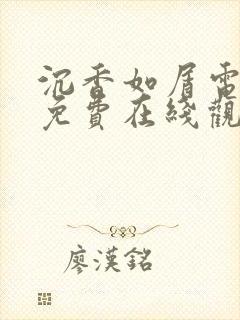 沉香如屑電
免費在綫觀
廖漢銘